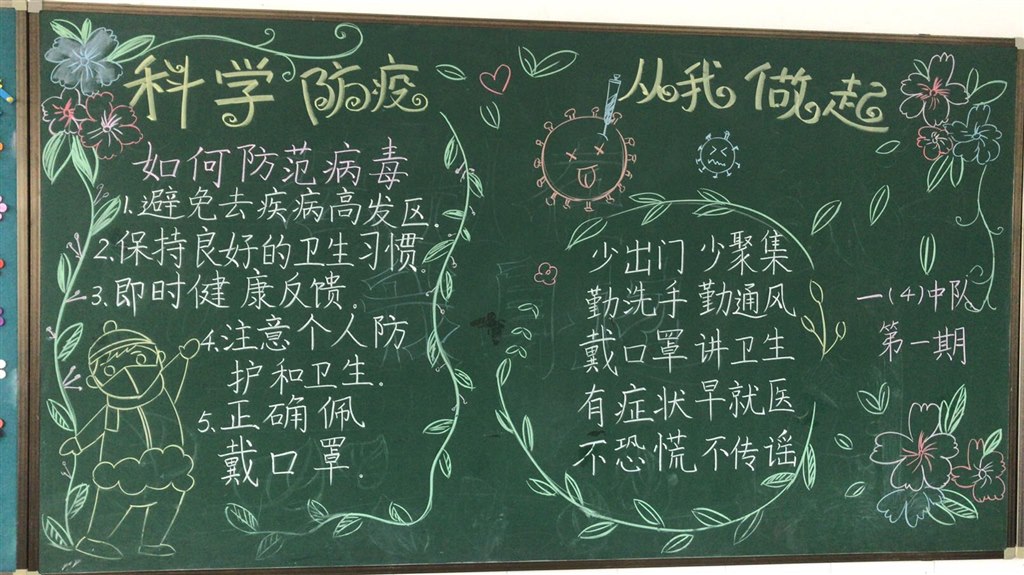 科学防疫 从我做起
如何防范病毒
1.避免去疾病高发区.
2.保持良好的卫生习惯.
3.即时健康反馈.
4.注意个人防
护和卫生.
5.正确佩
戴口罩.
少出门 少聚集
勤洗手 勤通风
戴口罩 讲卫生
有症状 早就医
不恐慌 不传谣
一(4)中队
第一期